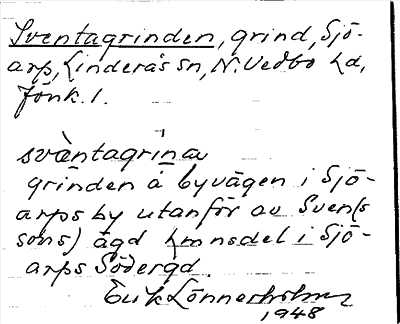 Sventagrinden, grind, Sjö-
arp, Linderås sn, N. Vedbo hd,
Jönk. l.
svæ̀ntagrìnav
grinden å byvägen i Sjö-
arps by utanför av Sven(s
sons) ägd hmnsdel i Sjö-
arps Södergd.
Erik Lönnerholm
1948